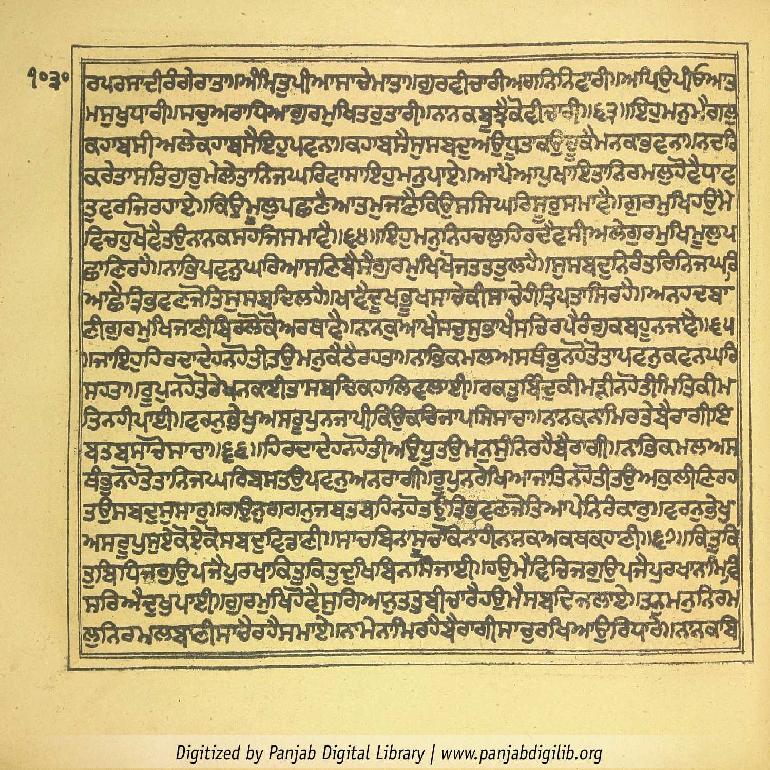 ੧੦੩੦
ਰਪਰਸਾਦੀਰੰਗੇਰਾਤਾ॥ਅੰਮ੍ਰਿਤੁਪੀਆਸਾਚੇਮਾਤਾ॥ਗੁਰਵੀਚਾਰੀਅਗਨਿਨਿਵਾਰੀ॥ਅਪਿਉਪੀਓਆਤ
ਮਸੁਖੁਧਾਰੀ॥ਸਚੁਅਰਾਧਿਆਗੁਰਮੁਖਿਤਰੁਤਾਰੀ॥ਨਾਨਕਬੂਝੈਕੋਵੀਚਾਰੀ॥੬੩॥ਇਹੁਮਨੁਮੈਗਲੁ
ਕਹਾਬਸੀਅਲੇਕਹਾਬਸੈਇਹੁਪਵਨਾ॥ਕਹਾਬਸੈਸੁਸਬਦੁਅਉਧੂਤਾਕਉਚੂਕੈਮਨਕਾਭਵਨਾ॥ਨਦਰਿ
ਕਰੇਤਾਸਤਿਗੁਰੁਮੇਲੇਤਾਨਿਜਘਰਿਵਾਸਾਇਹੁਮਨੁਪਾਏ॥ਆਪੈਆਪੁਖਾਇਤਾਨਿਰਮਲੁਹੋਵੈਧਾਵ
ਤੁਵਰਜਿਰਹਾਏ॥ਕਿਉਮੂਲੁਪਛਾਣੈਆਤਮੁਜਾਣੈਕਿਉਸਸਿਘਰਿਸੂਰੁਸਮਾਵੈ॥ਗੁਰਮੁਖਿਹਉਮੈ
ਵਿਚਹੁਖੋਵੈਤਉਨਾਨਕਸਹਜਿਸਮਾਵੈ॥੬੪॥ਇਹੁਮਨੁਨਿਹਚਲੁਹਿਰਦੈਵਸੀਅਲੇਗੁਰਮੁਖਿਮੂਲੁਪ
ਛਾਣਿਰਹੈ॥ਨਾਭਿਪਵਨੁਘਰਿਆਸਣਿਬੈਸੈਗੁਰਮੁਖਿਖੋਜਤਤਤੁਲਹੈ॥ਸੁਸਬਦੁਨਿਰੰਤਰਿਨਿਜਘਰਿ
ਆਛੈਤ੍ਰਿਭਵਣਜੋਤਿਸੁਸਬਦਿਲਹੈ॥ਖਾਵੈਦੂਖਭੂਖਸਾਚੇਕੀਸਾਚੇਹੀਤ੍ਰਿਪਤਾਸਿਰਹੈ॥ਅਨਹਦਬਾ
ਣੀਗੁਰਮੁਖਿਜਾਣੀਬਿਰਲੋਕੋਅਰਥਾਵੈ॥ਨਾਨਕੁਆਖੈਸਚੁਸੁਭਾਖੈਸਚਿਰਪੈਰੰਗੁਕਬਹੂਨਜਾਵੈ॥੬੫
॥ਜਾਇਹੁਹਿਰਦਾਦੇਹਨਹੋਤੀਤਉਮਨੁਕੈਠੈਰਹਤਾ॥ਨਾਭਿਕਮਲਅਸਥੰਭੁਨਹੋਤੋਤਾਪਵਨੁਕਵਨਘਰਿ
ਸਹਤਾ॥ਰੂਪੁਨਹੋਤੋਰੇਖਨਕਾਈਤਾਸਬਦਿਕਹਾਲਿਵਲਾਈ॥ਰਕਤੁਬਿੰਦੁਕੀਮੜੀਨਹੋਤੀਮਿਤਿਕੀਮ
ਤਿਨਹੀਪਾਈ॥ਵਰਨੁਭੇਖੁਅਸਰੂਪੁਨਜਾਪੀਕਿਉਕਰਿਜਾਪਸਿਸਾਚਾ॥ਨਾਨਕਨਾਮਿਰਤੇਬੈਰਾਗੀਇ
ਬਤਬਸਾਚੋਸਾਚਾ॥੬੬॥ਹਿਰਦਾਦੇਹਨਹੋਤੀਅਉਧੂਤਉਮਨੁਸੁੰਨਿਰਹੈਬੈਰਾਗੀ॥ਨਾਭਿਕਮਲਅਸ
ਥੰਭੁਨਹੋਤੋਤਾਨਿਜਘਰਿਬਸਤਉਪਵਨੁਅਨਰਾਗੀ॥ਰੂਪੁਨਰੇਖਿਆਜਾਤਿਨਹੋਤੀਤਉਅਕੁਲੀਣਿਰਹ
ਤਉਸਬਦੁਸੁਸਾਰੁ॥ਗਉਨੁਗਗਨੁਜਬਤਬਹਿਨਹੋਤਉਤ੍ਰਿਭਵਣਜੋਤਿਆਪੇਨਿਰੰਕਾਰੁ॥ਵਰਨੁਭੇਖੁ
ਅਸਰੂਪੁਸੁਏਕੋਏਕੋਸਬਦੁਵਿਡਾਣੀ॥ਸਾਚਬਿਨਾਸੂਚਾਕੋਨਾਹੀਨਾਨਕਅਕਥਕਹਾਣੀ॥੬੭॥ਕਿਤੁਕਿ
ਤੁਬਿਧਿਜਗੁਉਪਜੈਪੁਰਖਾਕਿਤੁਕਿਤੁਦੁਖਿਬਿਨਸਿਜਾਈ॥ਹਉਮੈਵਿਚਿਜਗੁਉਪਜੈਪੁਰਖਾਨਾਮਿਵਿ
ਸਰਿਐਦੁਖੁਪਾਈ॥ਗੁਰਮੁਖਿਹੋਵੈਸੁਗਿਆਨੁਤਤੁਬੀਚਾਰੈਹਉਮੈਸਬਦਿਜਲਾਏ॥ਤਨੁਮਨੁਨਿਰਮ
ਲੁਨਿਰਮਲਬਾਣੀਸਾਚੈਰਹੈਸਮਾਏ॥ਨਾਮੇਨਾਮਿਰਹੈਬੈਰਾਗੀਸਾਚੁਰਖਿਆਉਰਿਧਾਰੇ॥ਨਾਨਕਬਿ
Digitized by Panjab Digital Library | www.panjabdigilib.org